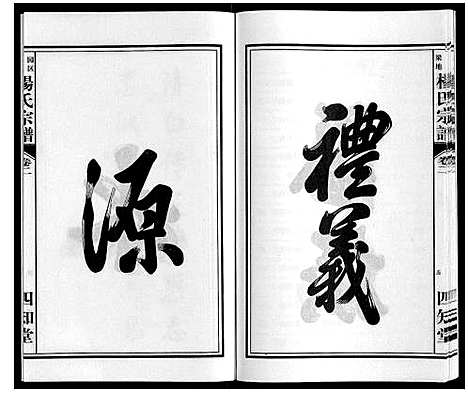 梁地
楊氏宗譜
卷二
五
四知堂
禮義
源
园区
楊氏宗譜
卷二
四知堂